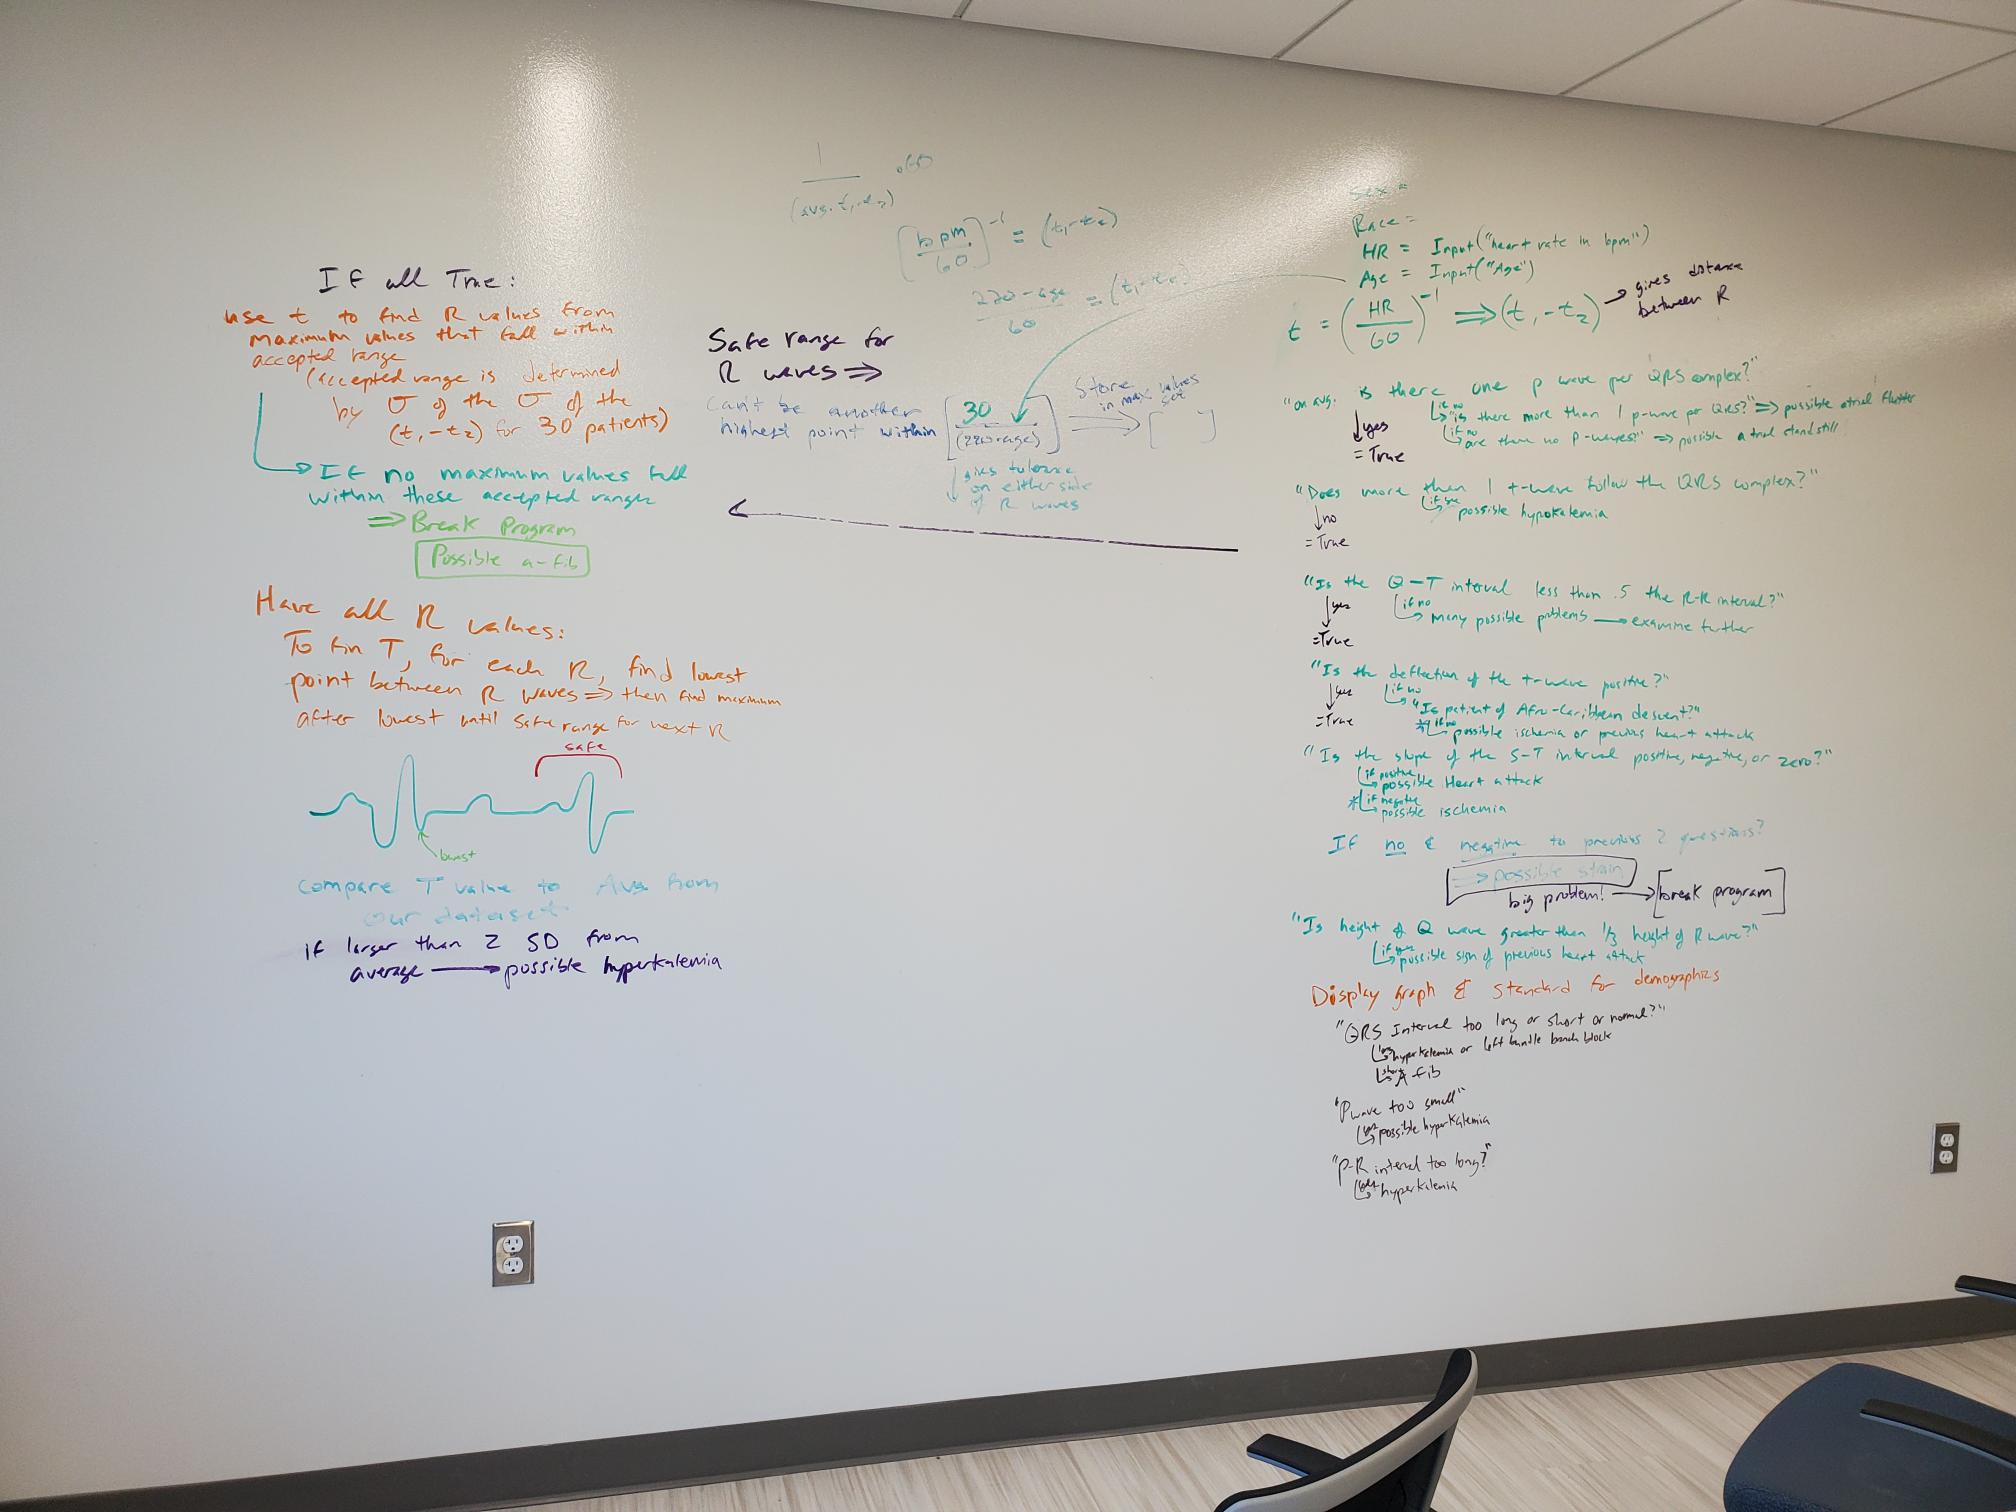 If all True:
use t to find R values from
maximum values that fall within
accepted range
(accepted range is determined
by σ of the σ of the
(t, -t₂) for 30 patients)
If no maximum values fall
within these accepted ranges
⇒ Break Program
Possible a-fib
Have all R values:
To fin T, for each R, find lowest
point between R waves ⇒ then find maximum
after lowest until safe range for next R
safe
lowest
compare T value to Avg from
our dataset
if larger than 2 SD from
average → possible hyperkalemia
1 / (avg. t₁-t₂) · 60
[bpm / 60]⁻¹ = (t₁-t₂)
220-age / 60 = (t₁-t₂)
Safe range for
R waves ⇒
Can't be another
highest point within [30 / (220-age)]
gives tolerance
on either side
of R waves
Store
in max values
set
[ ]
Sex =
Race =
HR = Input("heart rate in bpm")
Age = Input("Age")
t = (HR / 60)⁻¹ ⇒ (t, -t₂) → gives distance
between R
"on avg. is there one p wave per QRS complex?"
if no
"is there more than 1 p-wave per QRS?" ⇒ possible atrial flutter
if no
are there no P-waves?" ⇒ possible atrial standstill
yes
= True
"Does more than 1 t-wave follow the QRS complex?"
if yes
possible hypokalemia
no
= True
"Is the Q-T interval less than .5 the R-R interval?"
yes
if no
many possible problems → examine further
=True
"Is the deflection of the t-wave positive?"
yes
if no
"Is patient of Afro-Caribbean descent?"
=True
* if no
possible ischemia or previous heart attack
"Is the slope of the S-T interval positive, negative, or zero?"
if positive
possible Heart attack
* if negative
possible ischemia
If no & negative to previous 2 questions?
⇒ possible strain
big problem! → [break program]
"Is height of Q wave greater than 1/3 height of R wave?"
if yes
possible sign of previous heart attack
Display graph & standard for demographics
"QRS Interval too long or short or normal?"
long
hyperkalemia or left bundle banch block
short
A fib
"P wave too small"
yes
possible hyperkalemia
"P-R interval too long?"
yes
hyperkalemia